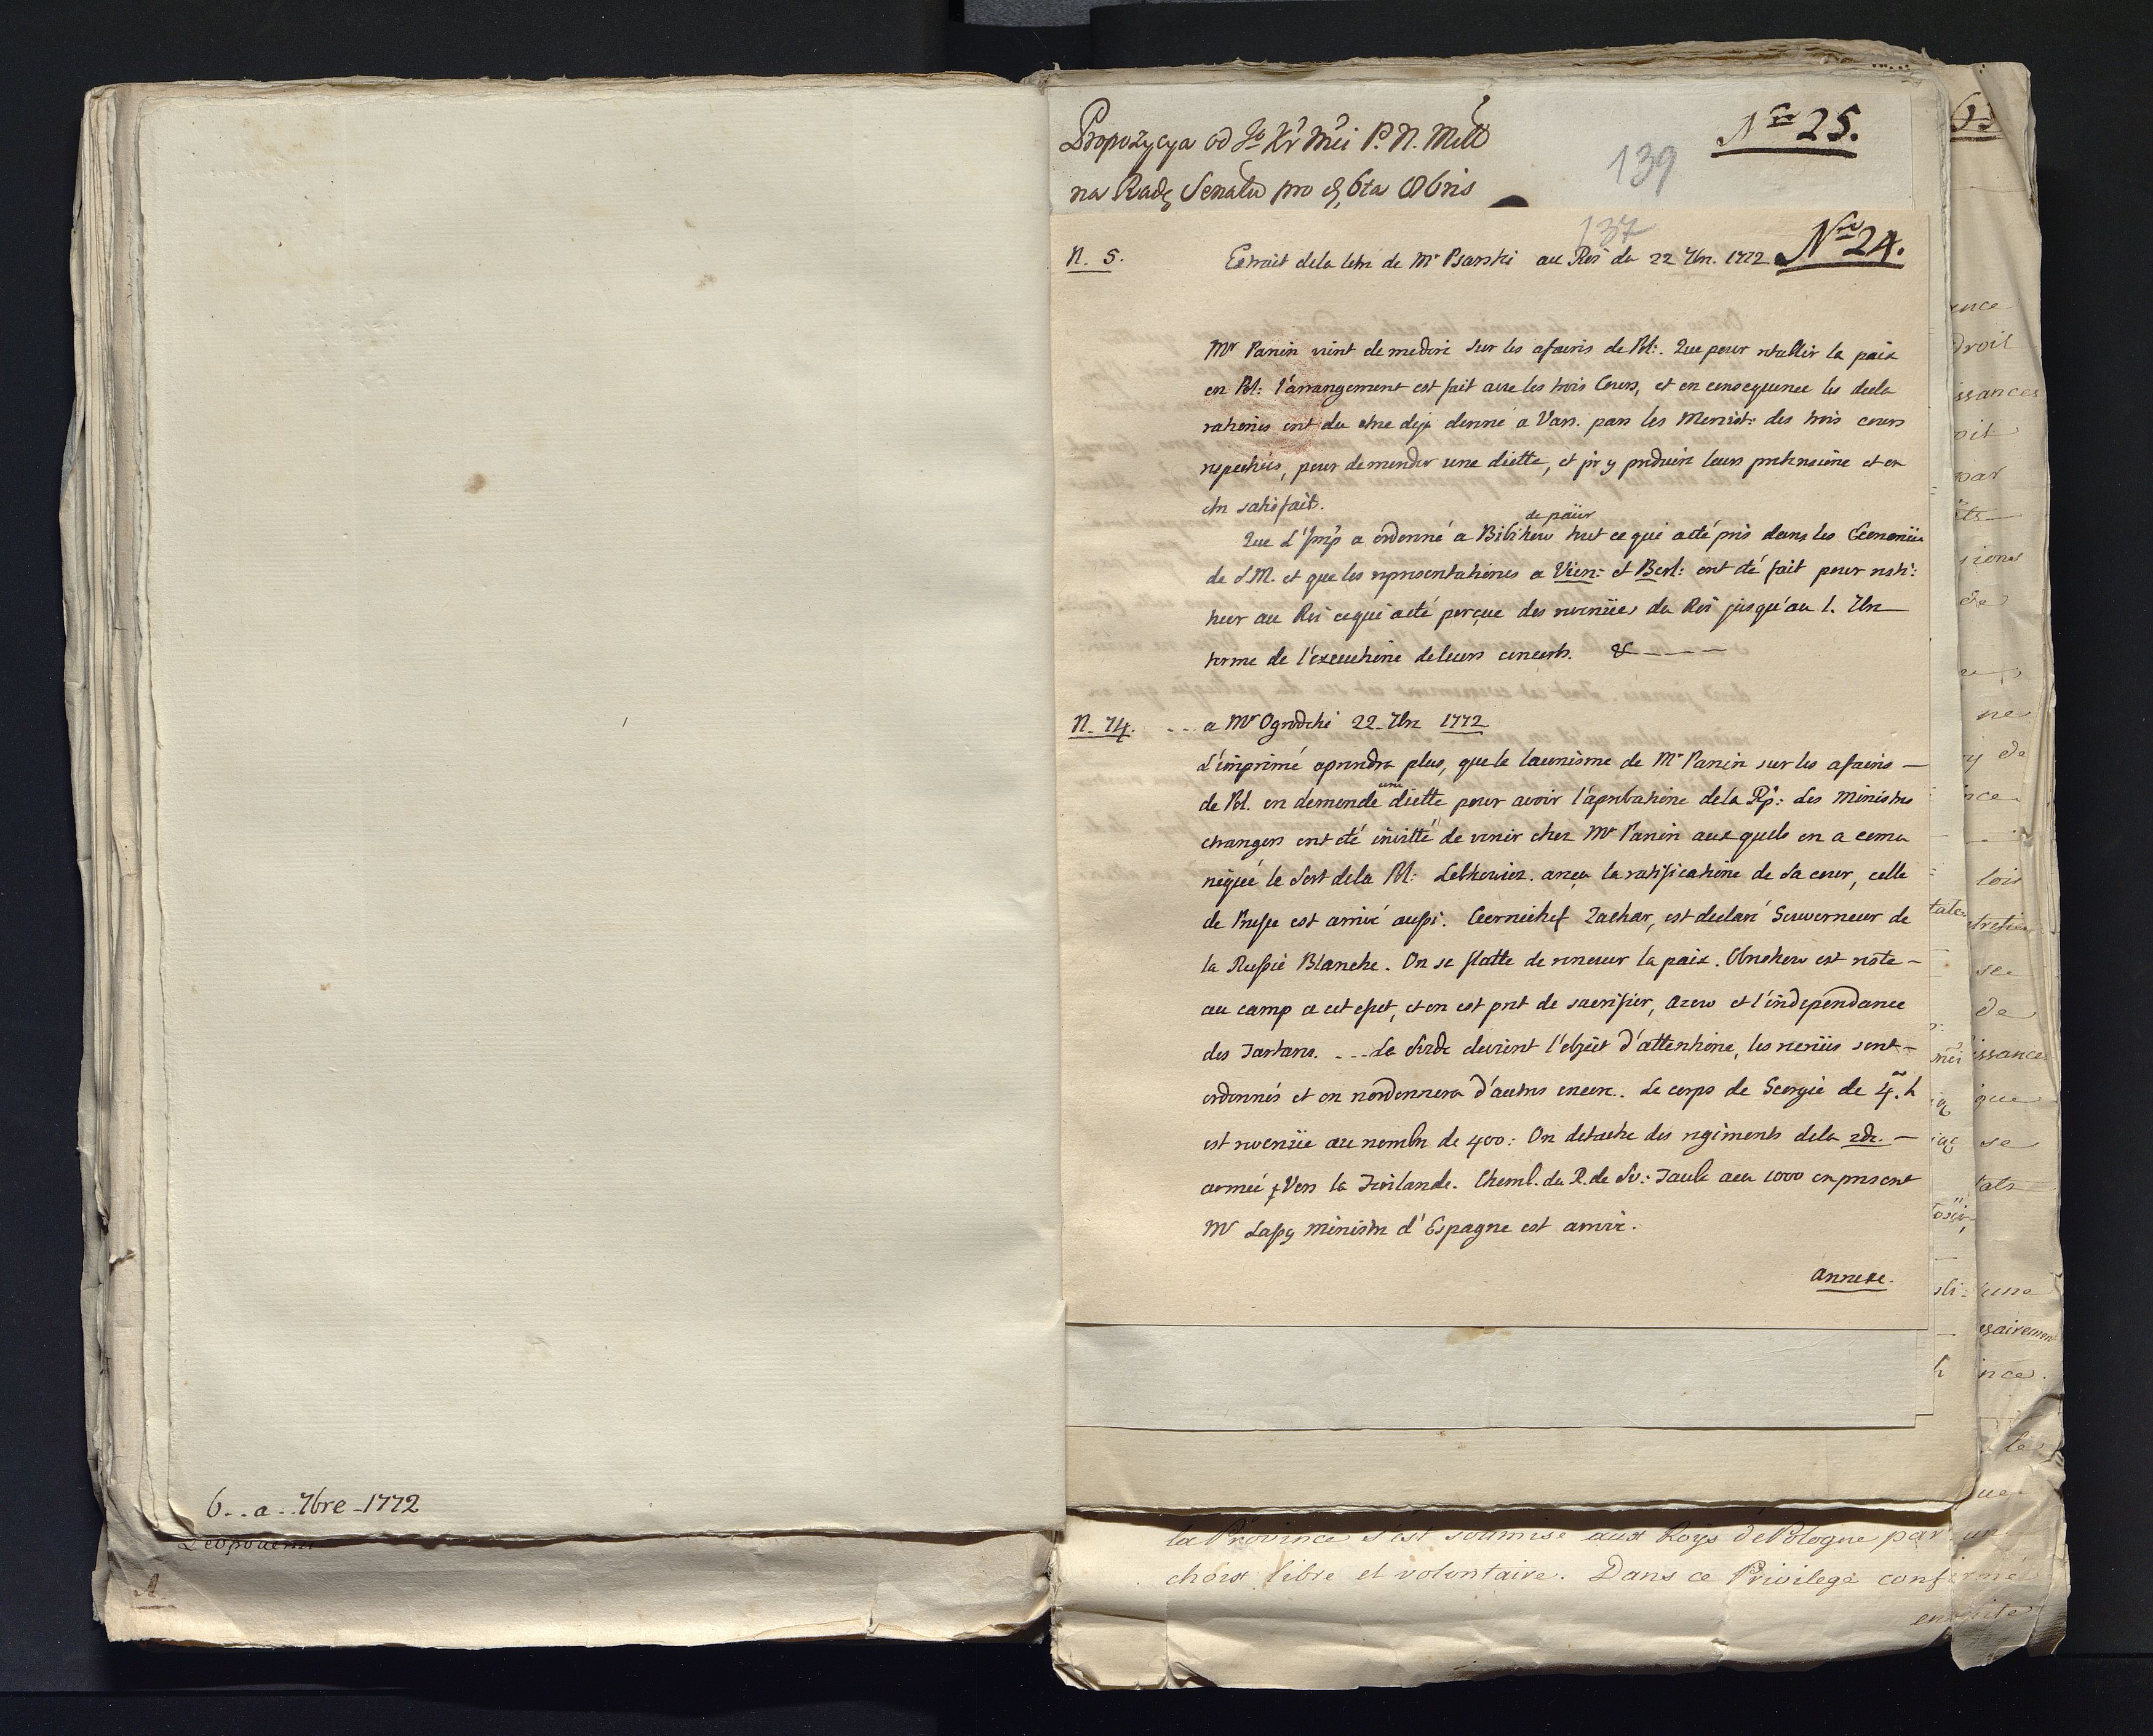 6...a...7bre-1772
Propozycya od Jo Kr Mći P. N. Miłło
na Radę Senatu pro 8, 6ta Obris
Nro 25.
139
137
Nro 24.
N. 5.
Extrait de la letre de Mr Psarski au Roi du 22 7bre. 1772.
Mr Panin vient de me dire sur les afaires de Pol:. Que pour retablir la paix
en Pol: l'arrangement est fait avec les trois Cours, et en consequence les decla
rationes ont du etre deja donné a Vars. par les Ministr: des trois cours
respectives, pour demender une diette, et pr y produire leurs pretensione et en
etre satisfaits.
Que L'Imp a ordonné a Bibikow de païer tout ce qui a eté pris dans les Economiies
de S.M. et que les representationes a Vien: et Berl: ont eté fait pour resti:
tuer au Roi ce qui a eté perçue des revenües du Roi jusqu'au 1. 7bre
terme de l'executione de leurs concerts. &
N. 74. ... a Mr Ogrodzki 22. 7bre 1772
L'imprimé aprendra plus, que le laconisme de Mr Panin sur les afaires
de Pol. on demende une diette pour avoir l'aprobatione de la Rp: Les Ministres
etrangers ont eté invitté de venir chez Mr Panin aux quels on a comu
niquée le Sort de la Pol: Lobkowicz. a reçu la ratificatione de Sa cour, celle
de Prusse est arrivé aussi. Czernichef Zachar, est declaré Gouverneur de
la Russie Blanche. On se flatte de renouer la paix. Obreskow est resté
au camp a cet efet, et on est pret de sacrifier, Azow et l'independance
des Tartars. ... La Suede devient l'objet d'attentione, les recrües sont
ordonnés et on reordonnera d'autres encore.. Le corps de Georgie de 4.m h
est revenüe au nombre de 400: On detache des regiments de la 2de.
armée Vers la Finlande. Chamb. du R. de Su: Taube a eu 1000 en present
Mr Lassy ministre d'Espagne est arrivé.
Annexe.
la Province s'est soumise aux Roys de Pologne par un
choix libre et volontaire. Dans ce Privilege confirmé
ensuite